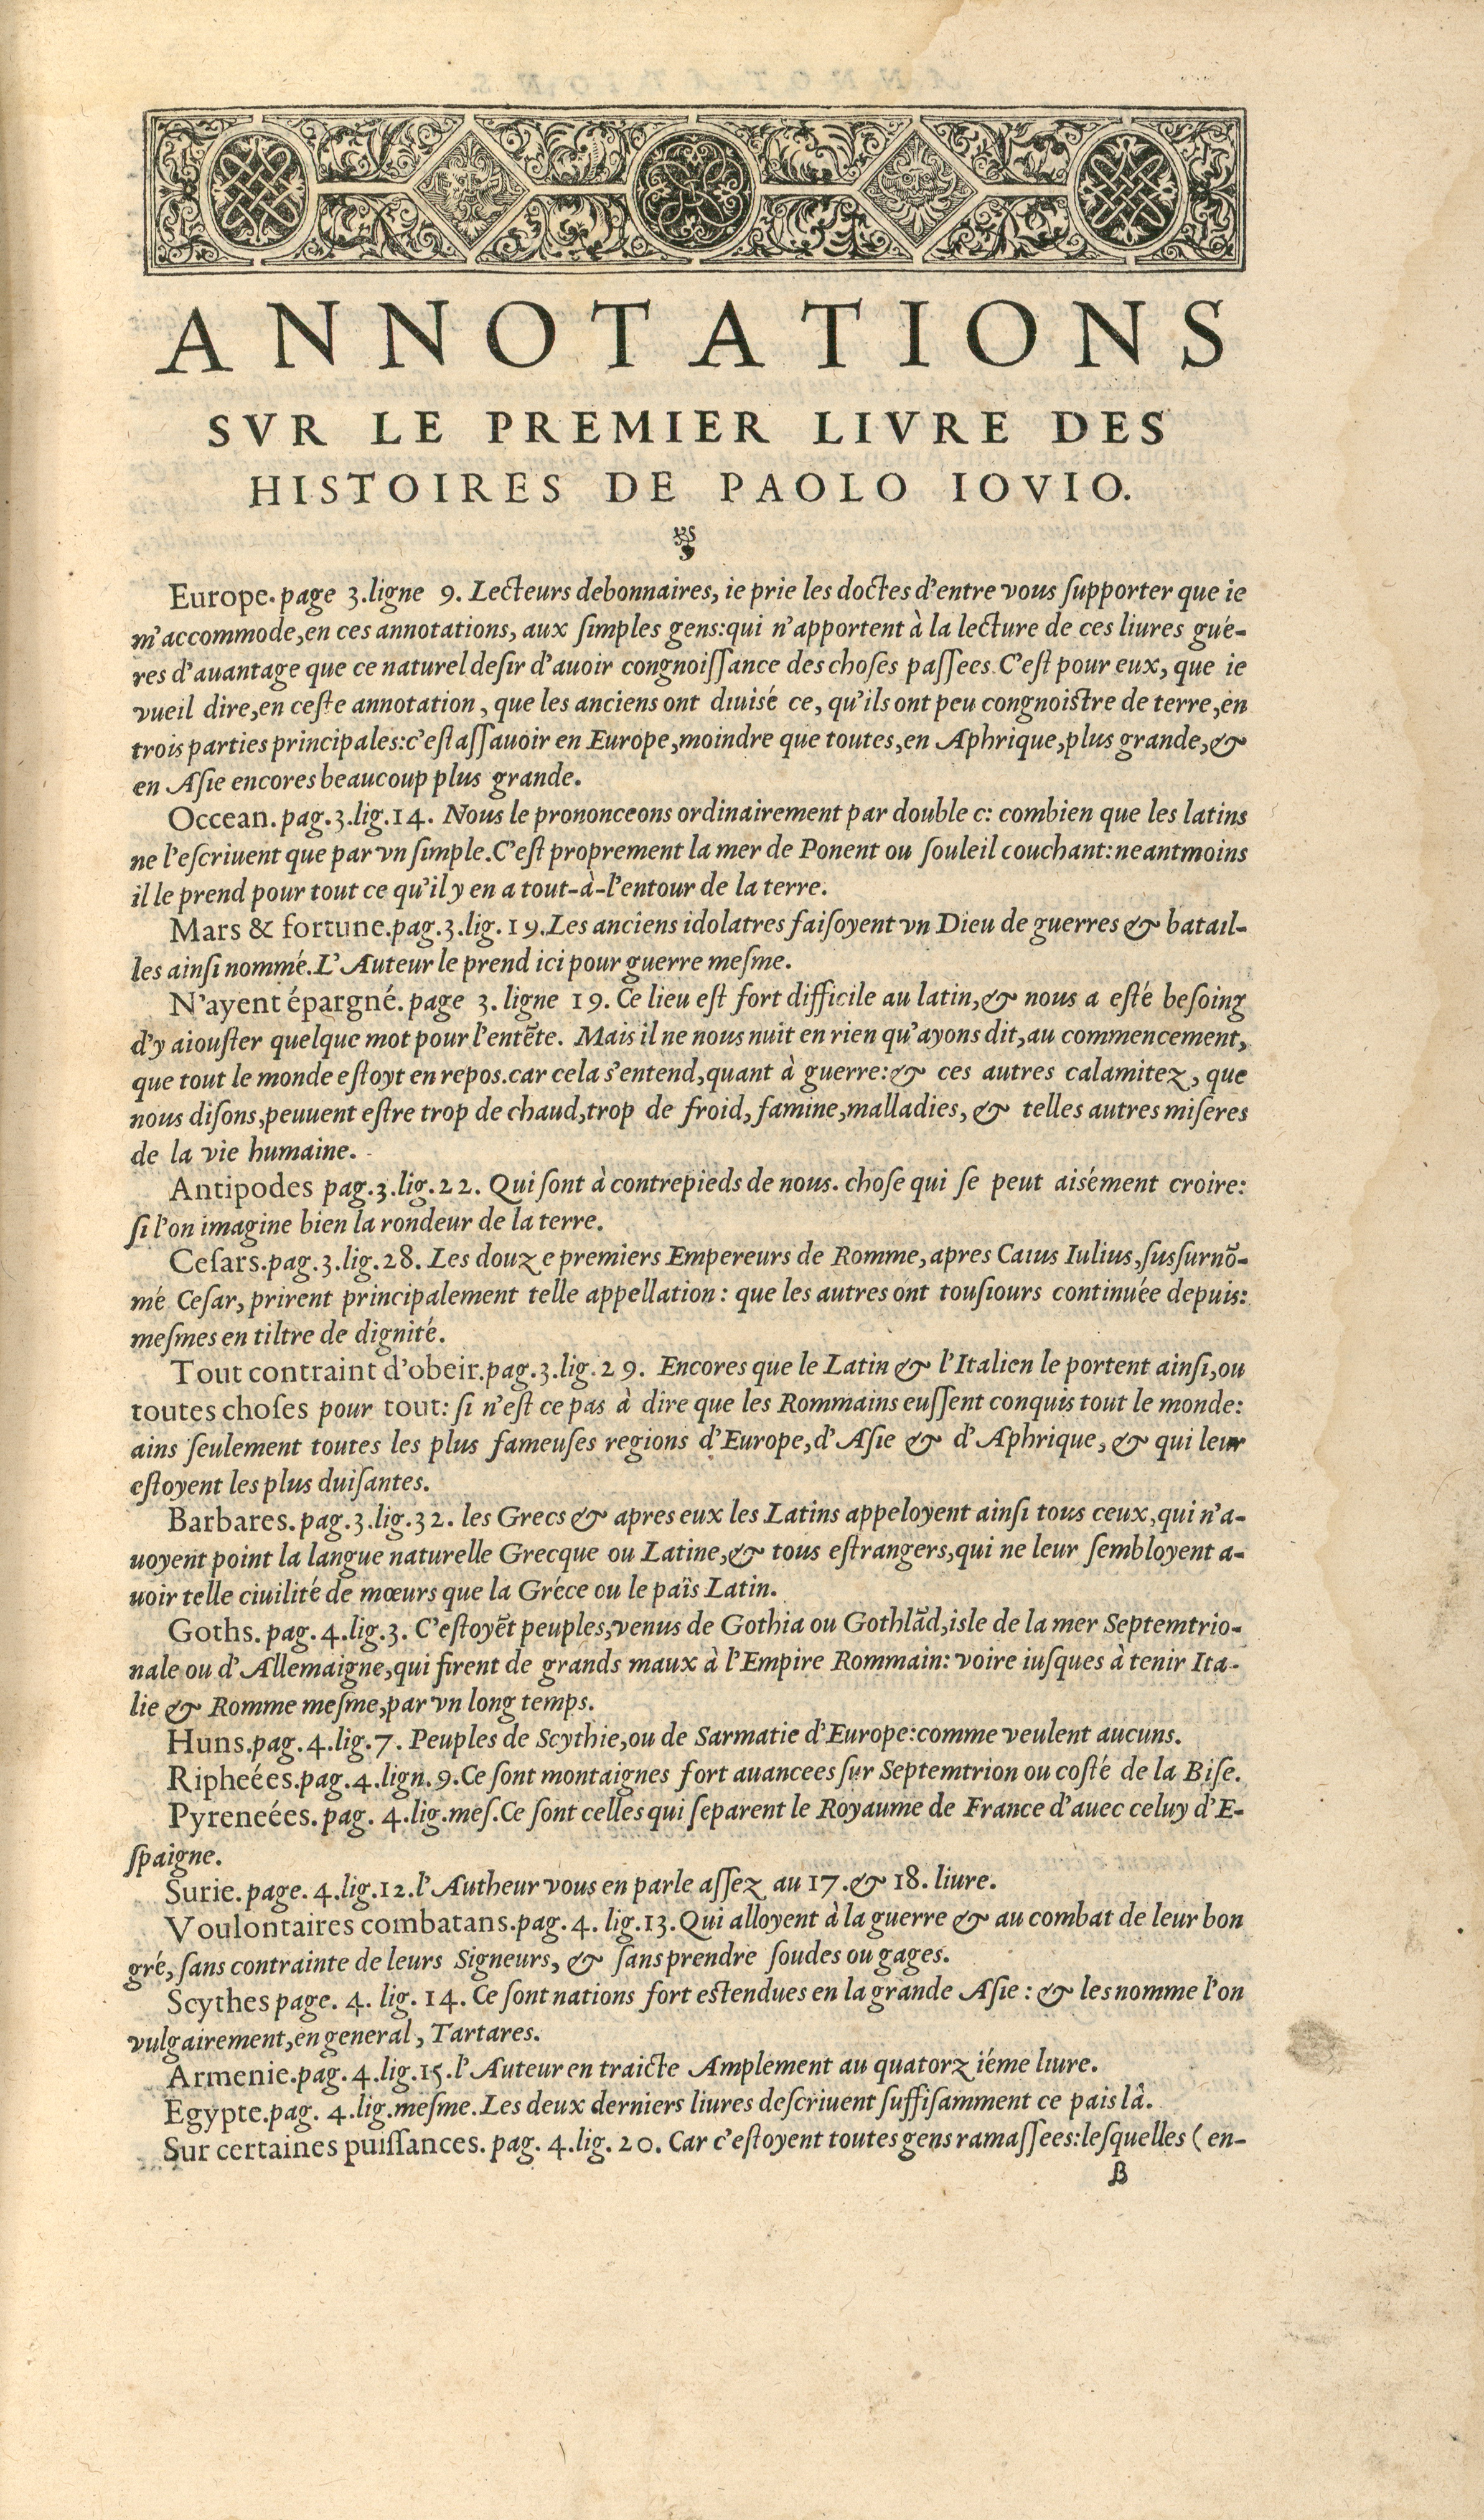 ANNOTATIONS
SVR LE PREMIER LIVRE DES
HISTOIRES DE PAOLO IOVIO.
Europe. page 3. ligne 9. Lecteurs debonnaires, ie prie les doctes d'entre vous ſupporter que ie
m'accommode, en ces annotations, aux ſimples gens: qui n'apportent à la lecture de ces liures gué-
res d'auantage que ce naturel deſir d'auoir congnoiſſance des choſes paſſees. C'eſt pour eux, que ie
vueil dire, en ceſte annotation, que les anciens ont diuisé ce, qu'ils ont peu congnoiſtre de terre, en
trois parties principales: c'eſt aſſauoir en Europe, moindre que toutes, en Aphrique, plus grande, &
en Aſie encores beaucoup plus grande.
Occean. pag. 3. lig. 14. Nous le prononceons ordinairement par double c: combien que les latins
ne l'eſcriuent que par vn ſimple. C'eſt proprement la mer de Ponent ou ſouleil couchant: neantmoins
il le prend pour tout ce qu'il y en a tout-à-l'entour de la terre.
Mars & fortune. pag. 3. lig. 19. Les anciens idolatres faiſoyent vn Dieu de guerres & batail-
les ainſi nommé. L'Auteur le prend ici pour guerre meſme.
N'ayent épargné. page 3. ligne 19. Ce lieu eſt fort difficile au latin, & nous a eſté beſoing
d'y aiouſter quelque mot pour l'entẽte. Mais il ne nous nuit en rien qu'ayons dit, au commencement,
que tout le monde eſtoyt en repos. car cela s'entend, quant à guerre: & ces autres calamitez, que
nous diſons, peuuent eſtre trop de chaud, trop de froid, famine, malladies, & telles autres miſeres
de la vie humaine.
Antipodes pag. 3. lig. 22. Qui ſont à contrepieds de nous. choſe qui ſe peut aisément croire:
ſi l'on imagine bien la rondeur de la terre.
Ceſars. pag. 3. lig. 28. Les douze premiers Empereurs de Romme, apres Caius Iulius, ſusſurnõ-
mé Ceſar, prirent principalement telle appellation: que les autres ont touſiours continuée depuis:
meſmes en tiltre de dignité.
Tout contraint d'obeir. pag. 3. lig. 29. Encores que le Latin & l'Italien le portent ainſi, ou
toutes choſes pour tout: ſi n'eſt ce pas à dire que les Rommains euſſent conquis tout le monde:
ains ſeulement toutes les plus fameuſes regions d'Europe, d'Aſie & d'Aphrique, & qui leur
eſtoyent les plus duiſantes.
Barbares. pag. 3. lig. 32. les Grecs & apres eux les Latins appeloyent ainſi tous ceux, qui n'a-
uoyent point la langue naturelle Grecque ou Latine, & tous eſtrangers, qui ne leur ſembloyent a-
uoir telle ciuilité de mœurs que la Gréce ou le païs Latin.
Goths. pag. 4. lig. 3. C'eſtoyẽt peuples, venus de Gothia ou Gothlãd, isle de la mer Septemtrio-
nale ou d'Allemaigne, qui firent de grands maux à l'Empire Rommain: voire iuſques à tenir Ita-
lie & Romme meſme, par vn long temps.
Huns. pag. 4. lig. 7. Peuples de Scythie, ou de Sarmatie d'Europe: comme veulent aucuns.
Ripheées. pag. 4. lign. 9. Ce ſont montaignes fort auancees ſur Septemtrion ou coſté de la Biſe.
Pyreneées. pag. 4. lig. meſ. Ce ſont celles qui ſeparent le Royaume de France d'auec celuy d'E-
ſpaigne.
Surie. page. 4. lig. 12. l'Autheur vous en parle aſſez au 17. & 18. liure.
Voulontaires combatans. pag. 4. lig. 13. Qui alloyent à la guerre & au combat de leur bon
gré, ſans contrainte de leurs Signeurs, & ſans prendre ſoudes ou gages.
Scythes page. 4. lig. 14. Ce ſont nations fort eſtendues en la grande Aſie: & les nomme l'on
vulgairement, en general, Tartares.
Armenie. pag. 4. lig. 15. l'Auteur en traicte Amplement au quatorziéme liure.
Egypte. pag. 4. lig. meſme. Les deux derniers liures deſcriuent ſuffiſamment ce pais là.
Sur certaines puiſſances. pag. 4. lig. 20. Car c'eſtoyent toutes gens ramaſſees: leſquelles (en-
B